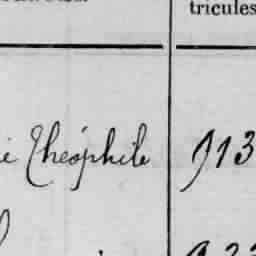 tricules
i Théophile 913